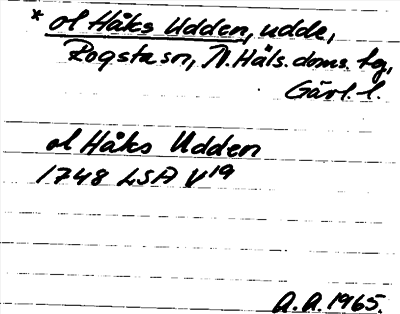 * ol Håks Udden, udde,
Rogsta sn, N. Häls. doms. tg,
Gävl. l.
ol Håks Udden
1748 LSA V¹⁹
A.A. 1965.